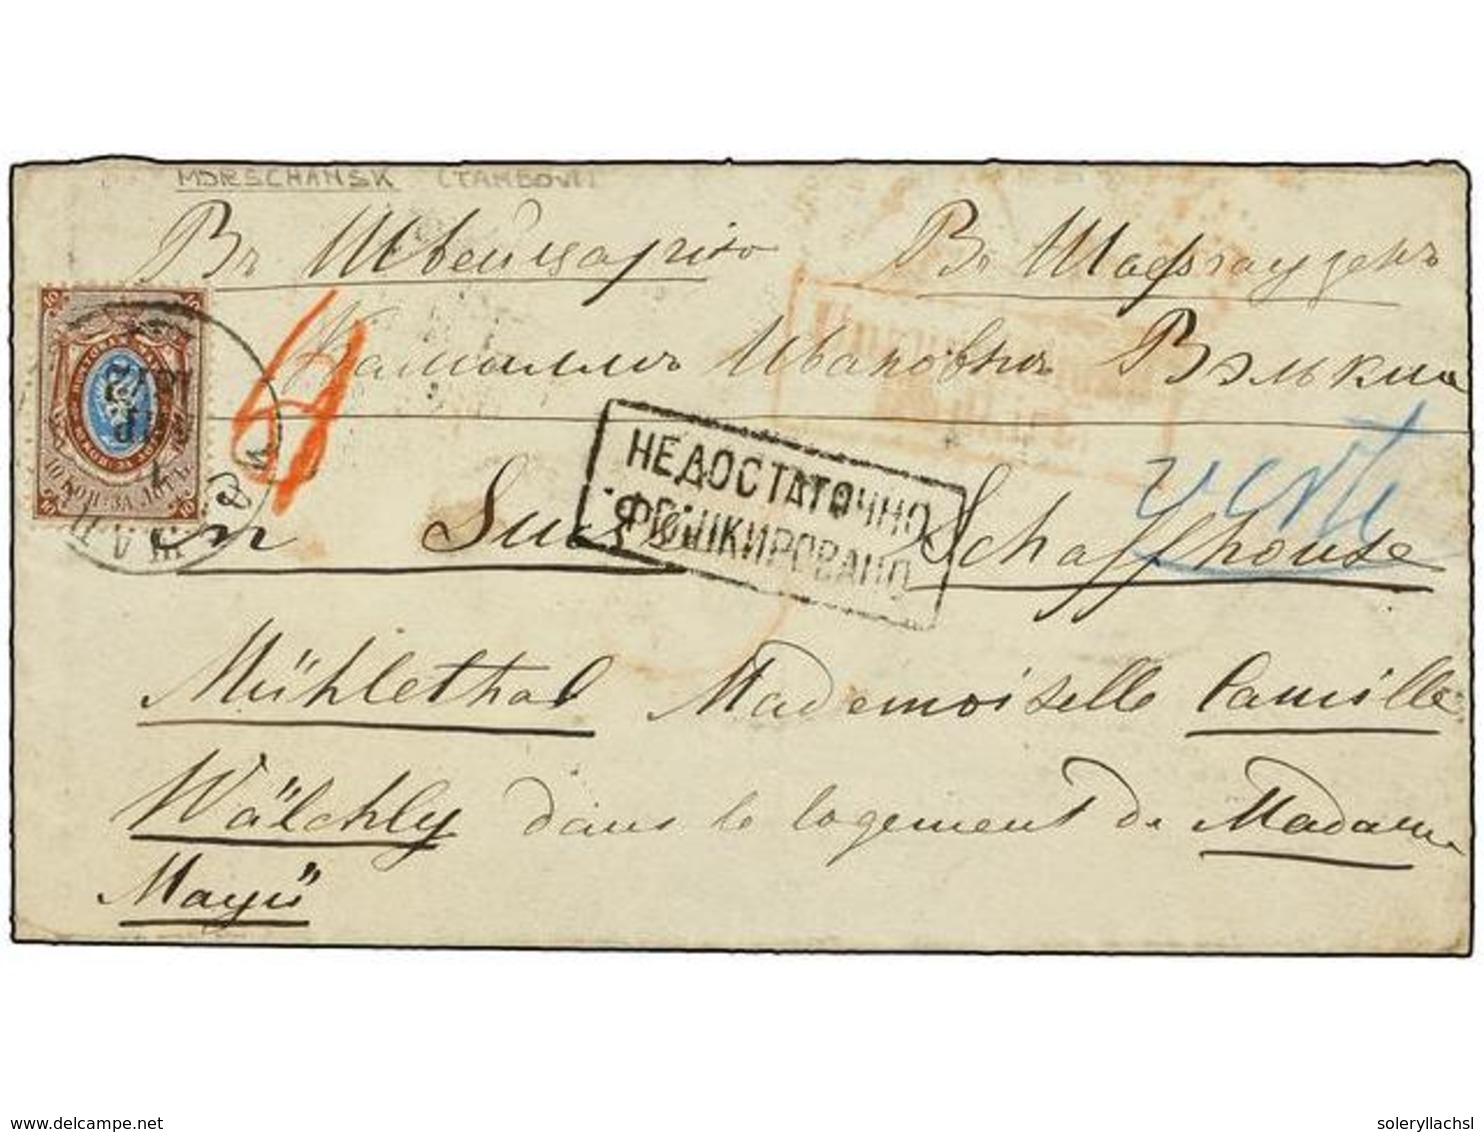 MORSCHANSK (TAMBOV)
Въ Швейцарію Въ Шафгаузенъ
Камиллъ Ивановнъ Вэльхли
НЕДОСТАТОЧНО
ФРАНКИРОВАНО
en Suisse Schaffhouse
Mühlethal Mademoiselle Camille
Wälchly dans le logement de Madame
Mayü
10 КОП. ЗА ЛОТЪ
delcampe.net
soleryllachsl